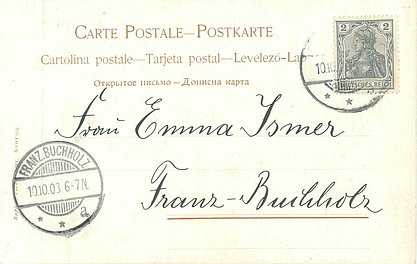 CARTE POSTALE—POSTKARTE
Cartolina postale—Tarjeta postal—Levelező-La
Открытое письмо—Дописна карта
2 2
DEUTSCHES REICH
10.10
Frau Emma Ismer
Franz-Buchholz
FRANZ.BUCHHOLZ
10.10.03 6-7N.
* * a